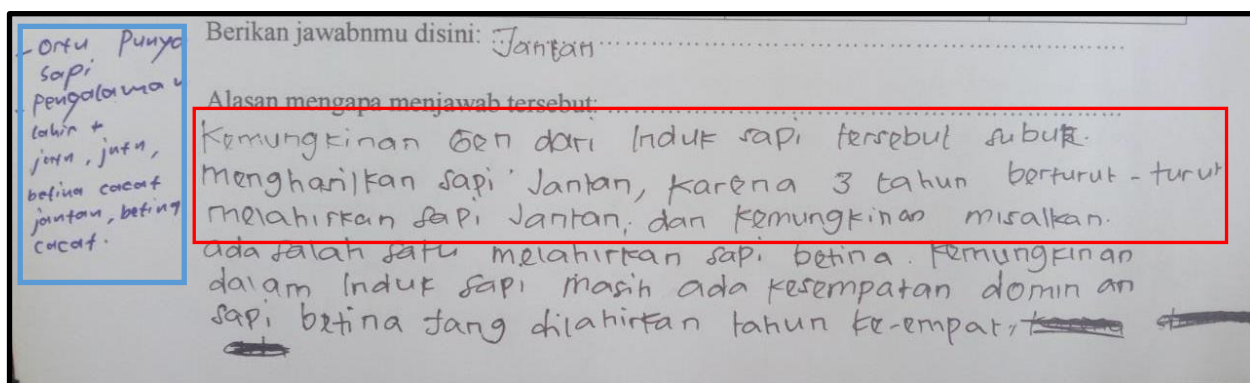 - Ortu Punya
sapi
- Pengalaman
lahir +
jntn, jntn,
betina cacat
jantan, betina
cacat.
Berikan jawabnmu disini: Jantan
Alasan mengapa menjawab tersebut:
Kemungkinan Gen dari Induk sapi tersebut subur.
menghasilkan sapi Jantan, karena 3 tahun berturut-turut
melahirkan sapi Jantan, dan kemungkinan misalkan.
ada salah satu melahirkan sapi betina. Kemungkinan
dalam Induk sapi masih ada kesempatan domin an
sapi betina yang dilahirkan tahun ke-empat,